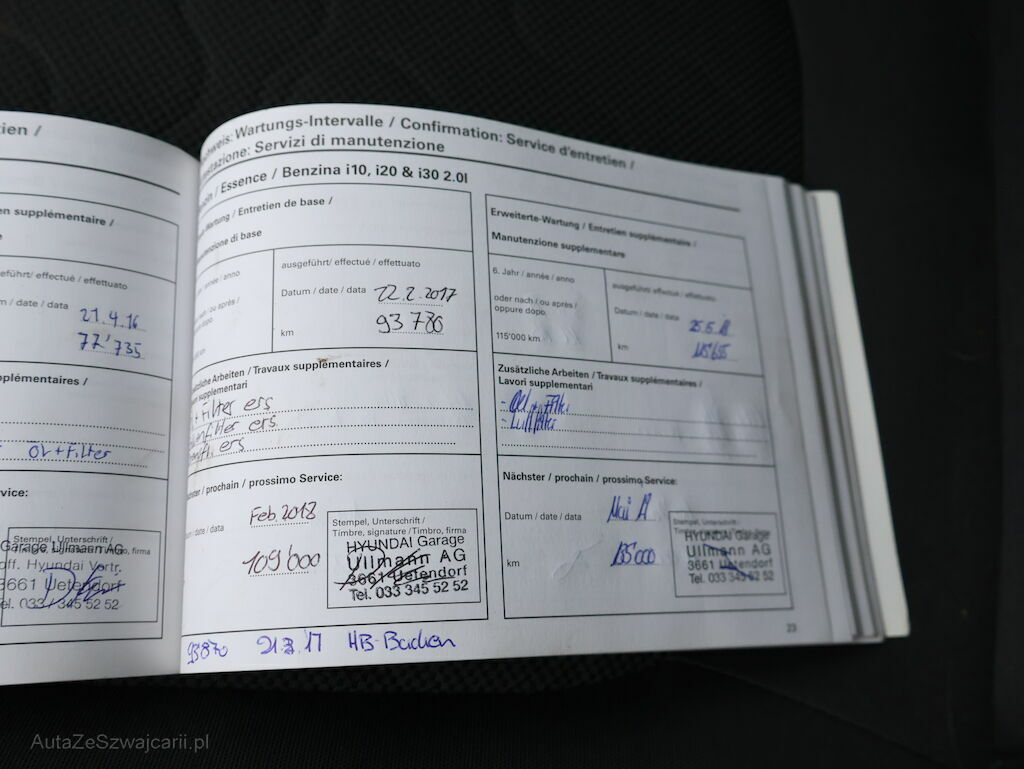 ien /
en supplémentaire /
eführt/ effectué / effettuato
m / date / data 21.4.16
77'735
pplémentaires /
Öl + Filter
vice:
Stempel, Unterschrift /
Garage Ullmann AG
off. Hyundai Vertr.
3661 Uetendorf
Tel. 033 / 345 52 52
Wartungs-Intervalle / Confirmation: Service d'entretien /
Servizi di manutenzione
/ Essence / Benzina i10, i20 & i30 2.0l
Wartung / Entretien de base /
di base
/ année / anno
ou après /
dopo
km
ausgeführt/ effectué / effettuato
Datum / date / data 22.2.2017
km 93 786
Zusätzliche Arbeiten / Travaux supplémentaires /
supplementari
+ Filter ers
filter ers
ers
Nächster / prochain / prossimo Service:
/ date / data Feb. 2018
109'000
Stempel, Unterschrift /
Timbre, signature / Timbro, firma
HYUNDAI Garage
Ullmann AG
3661 Uetendorf
Tel. 033 345 52 52
93870 21.3.17 HB-
Erweiterte-Wartung / Entretien supplémentaire /
Manutenzione supplementare
6. Jahr / année / anno
oder nach / ou après /
oppure dopo
115'000 km
ausgeführt/ effectué / effettuato
Datum / date / data
km
Zusätzliche Arbeiten / Travaux supplémentaires /
Lavori supplementari
- Luftfilter
Nächster / prochain / prossimo Service:
Datum / date / data Mai
km 135000
Stempel, Unterschrift /
Timbre, signature / Timbro, firma
HYUNDAI Garage
Ullmann AG
3661 Uetendorf
Tel. 033 345 52 52
23
AutaZeSzwajcarii.pl